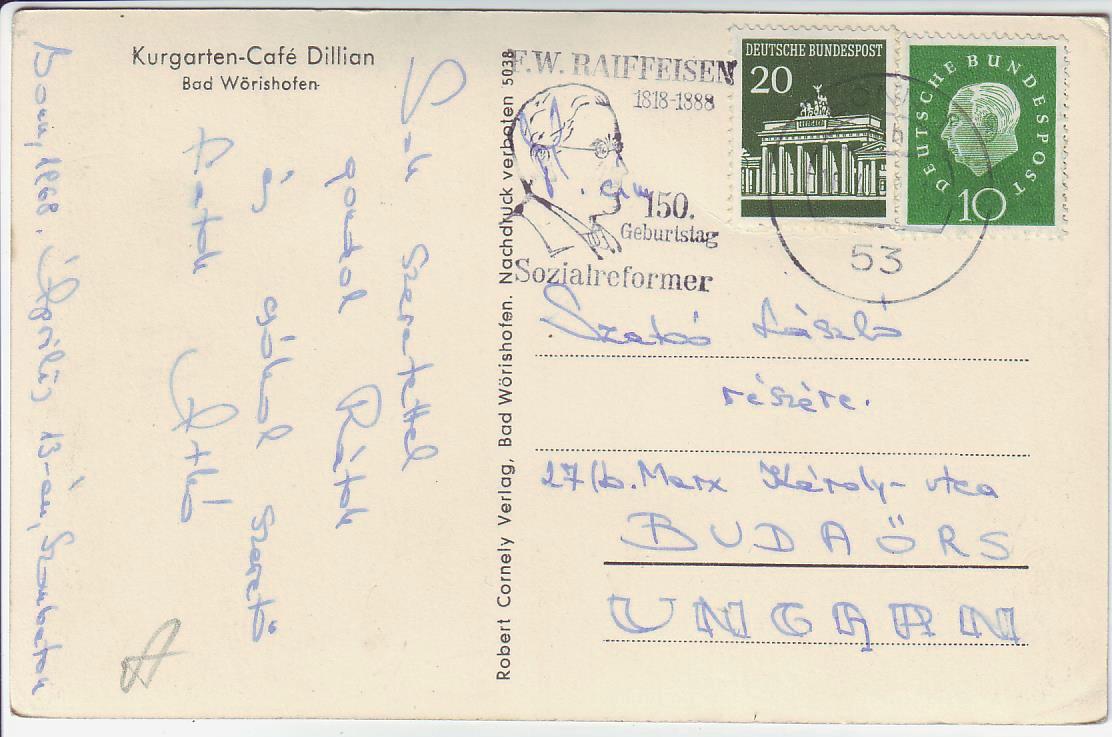 Kurgarten-Café Dillian
Bad Wörishofen
Bonn, 1968. Április 13-án, Szombaton
Sok szeretettel
gondol Rátok
és csókol szerető
Bátok
Robert Cornely Verlag, Bad Wörishofen. Nachdruck verboten 5038
F.W. RAIFFEISEN
1818-1888
150.
Geburtstag
Sozialreformer
DEUTSCHE BUNDESPOST
20
DEUTSCHE BUNDESPOST
10
53
Szabó László
részére.
27/b. Marx Károly-utca
BUDAÖRS
UNGARN